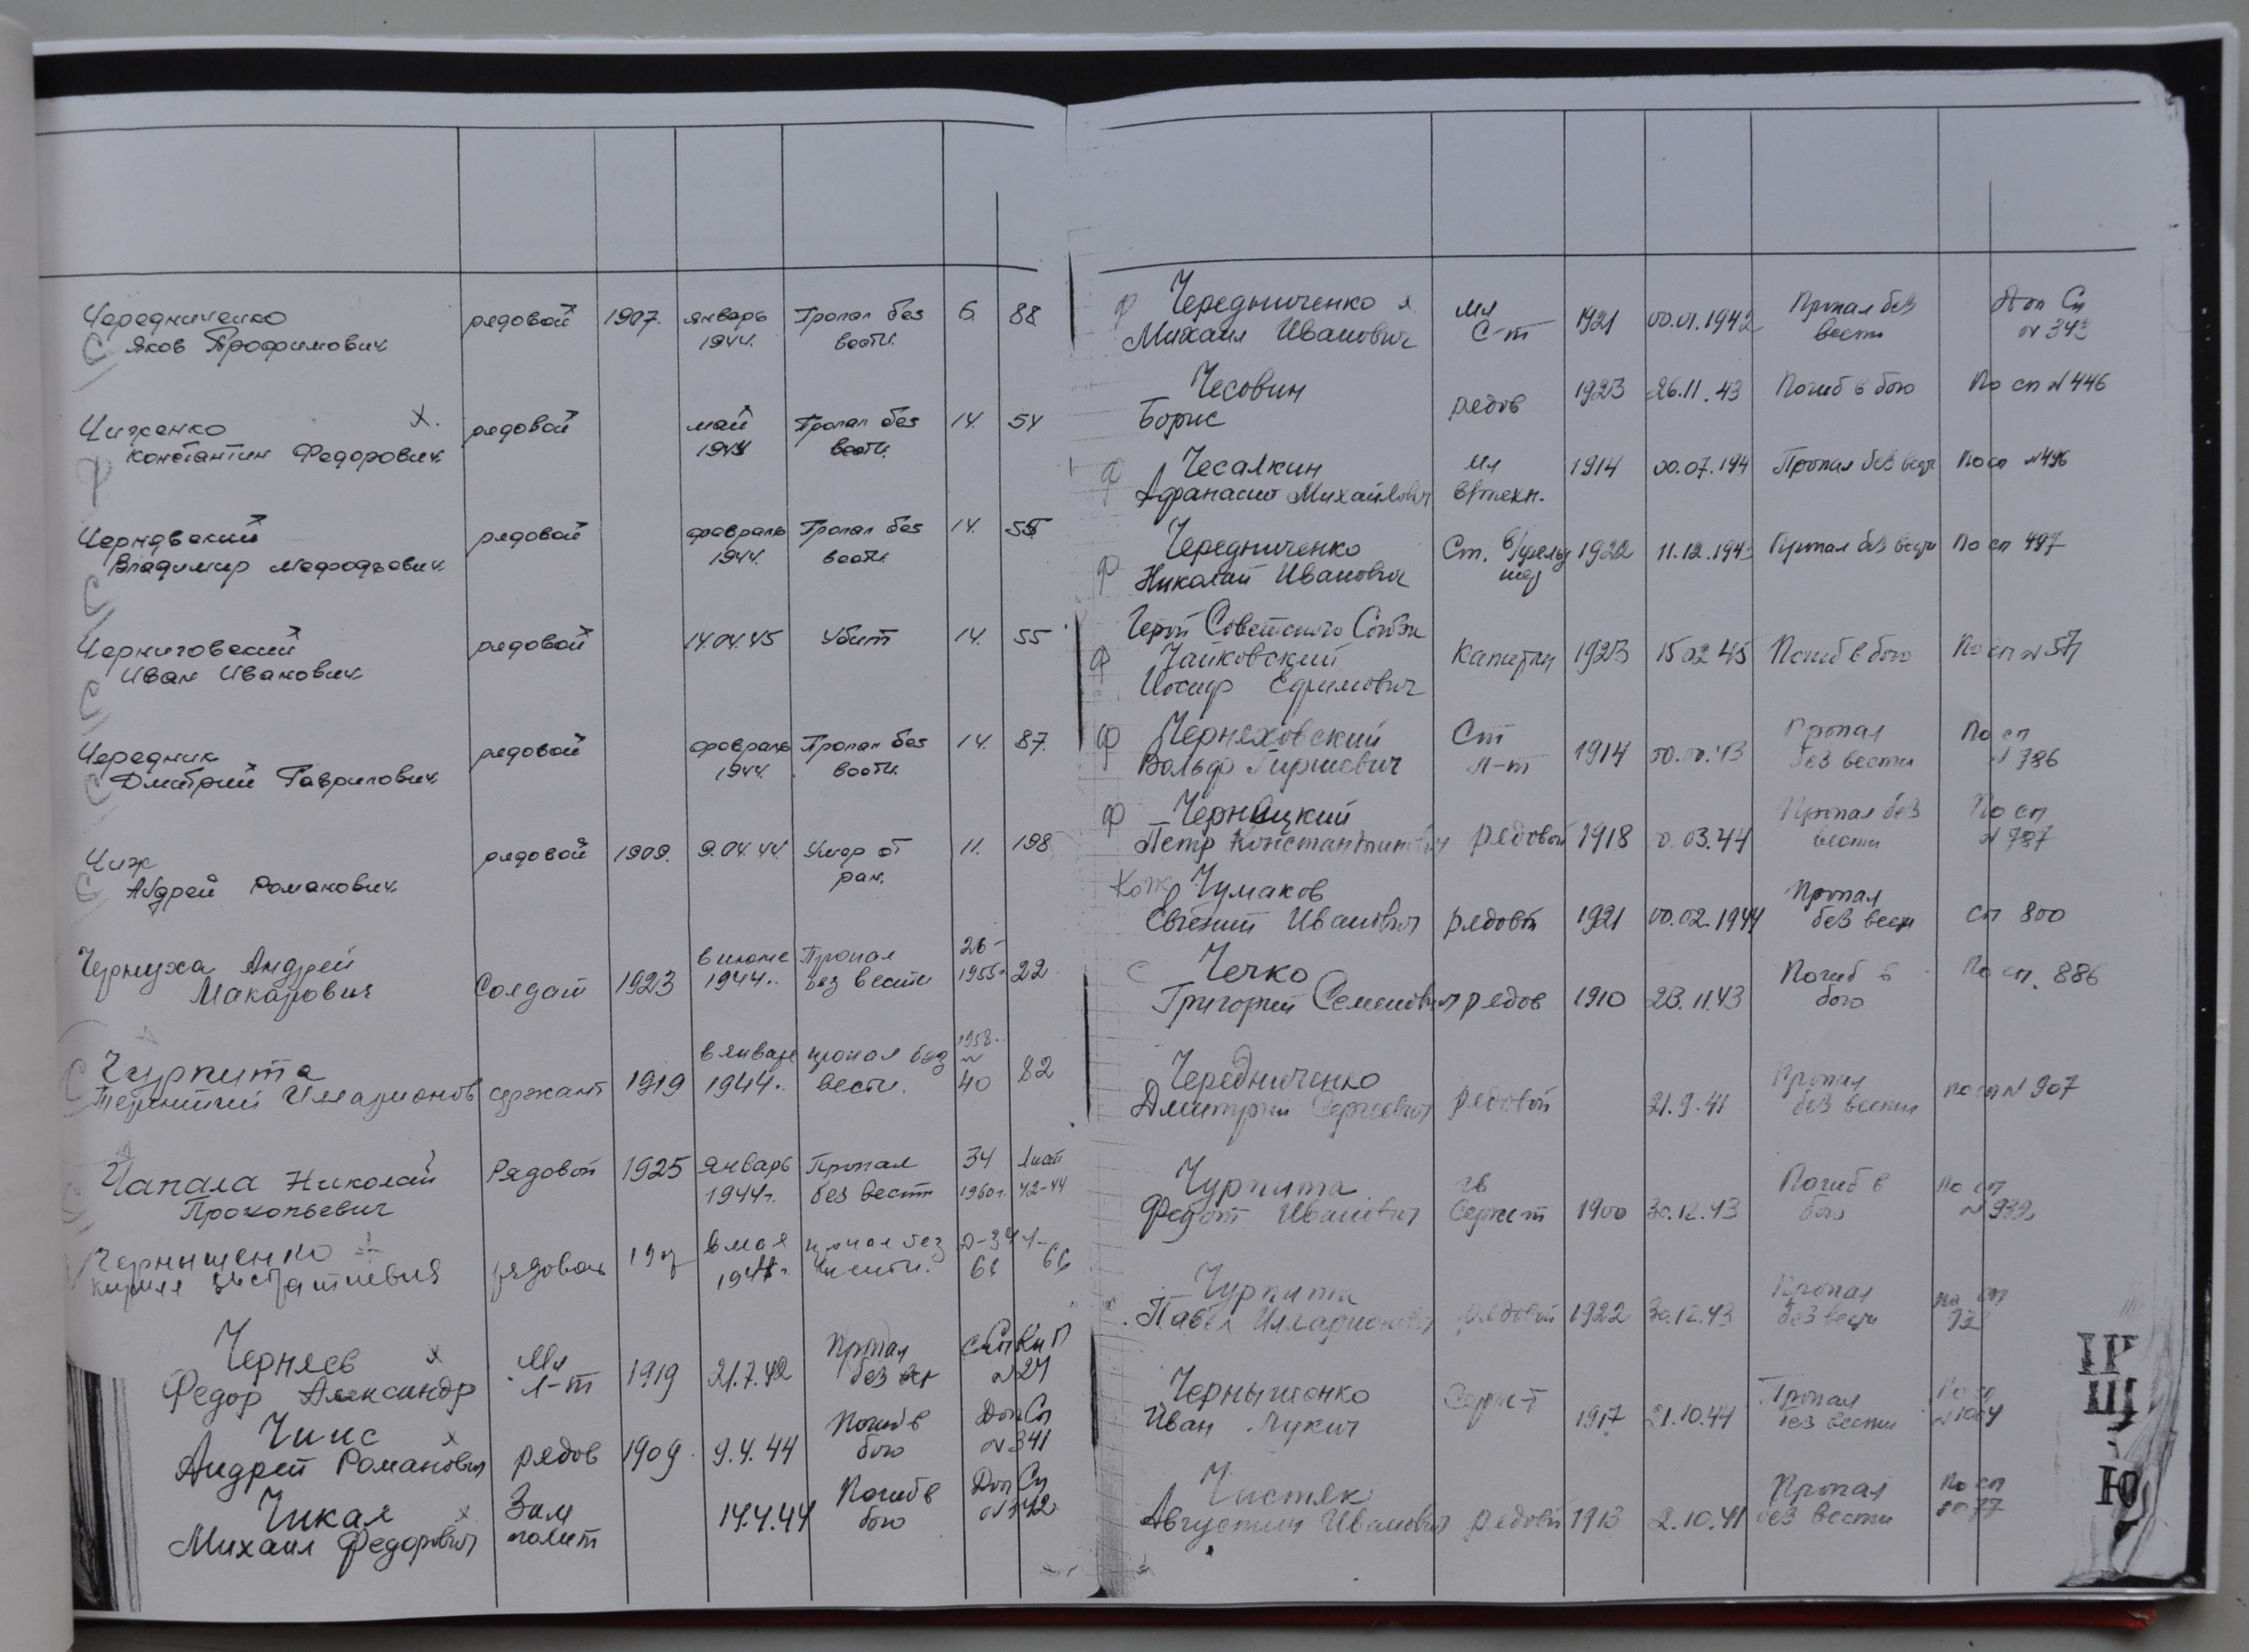 Чередниченко рядовой 1907. январь Пропал без 6. 88
С Яков Трофимович 1944. вести.
Чиженко х. рядовой май Пропал без 14. 54
Константин Федорович 1944 вести.
Чернявский рядовой февраль Пропал без 14. 55
Владимир Мефодьевич 1944. вести.
С
Черниговский рядовой 14.04.45 Убит 14. 55
Иван Иванович
С
Чередник рядовой февраль Пропал без 14. 87.
С Дмитрий Гаврилович 1944. вести.
Чиж рядовой 1909. 9.04.44. Умер от 11. 198
С Андрей Романович ран.
Чернуха Андрей в июне Пропал 26-
Макарович Солдат 1923 1944г. без вести 1955г 22
С Чурпита в январе пропал без 1958г. 82
Терентий Илларионов сержант 1919 1944г. вести. 40
Чапала Николай Рядовой 1925 январь Пропал 34 Лист
Прокопьевич 1944г. без вести 1960г. 42-44
Чернышенко рядовой в мая
Кирилл
Черняев х Мл 1919 21.7.42 Пропал
Федор Александр Л-т без N 27
Чиис х рядов 1909 9.4.44 Погиб в Доп Сп
Андрей Романович бою N 341
Чикал х Зам 14.4.44 Погиб в Доп Сп
Михаил Федорович полит бою N 342
ф Чередниченко х Мл 1921 00.01.1942 Пропал без Доп Сп
Михаил Иванович С-т вести N 343
Чесовин 1923 26.11.43 Погиб в бою По сп N 446
Борис рядов
ф Чесалкин Мл 1914 00.07.194 Пропал без вести По сп N 496
Афанасий Михайлович в/техн.
Чередниченко Ст. в/фельд 1922 11.12.194 Пропал без вести По сп 497
ф Николай Иванович шер
Герой Советского Союза
ф Чайковский Капитан 1923 15.02.45 Погиб в бою По сп N 571
Иосиф Ефимович
ф Черняховский Ст 1914 00.00.43 Пропал По сп
Вольф Гиршевич Л-т без вести N 786
ф Черницкий Пропал без По сп
Петр Константинович рядовой 1918 0.03.44 вести N 787
Чумаков Пропал
Евгений Иванович рядовой 1921 00.02.1944 без вести Сп 800
С Чечко Погиб в По сп. 886
Григорий Семенович рядов 1910 23.11.43 бою
Чередниченко Пропал по сп N 907
Дмитрий Сергеевич рядовой 21.9.41 без вести
Чурпита гв Погиб в По сп
Федот Иванович Сержт 1900 30.12.43 бою N 932
Чурпита Пропал по сп
Павел Илларионович рядовой 1922 30.12.43 без вести
Чернышенко Сержт Пропал По сп
Иван Лукич 1917 21.10.41 без вести
Чистяк Пропал По сп
Августин Иванович рядовой 1913 2.10.41 без вести
Щ
Ю